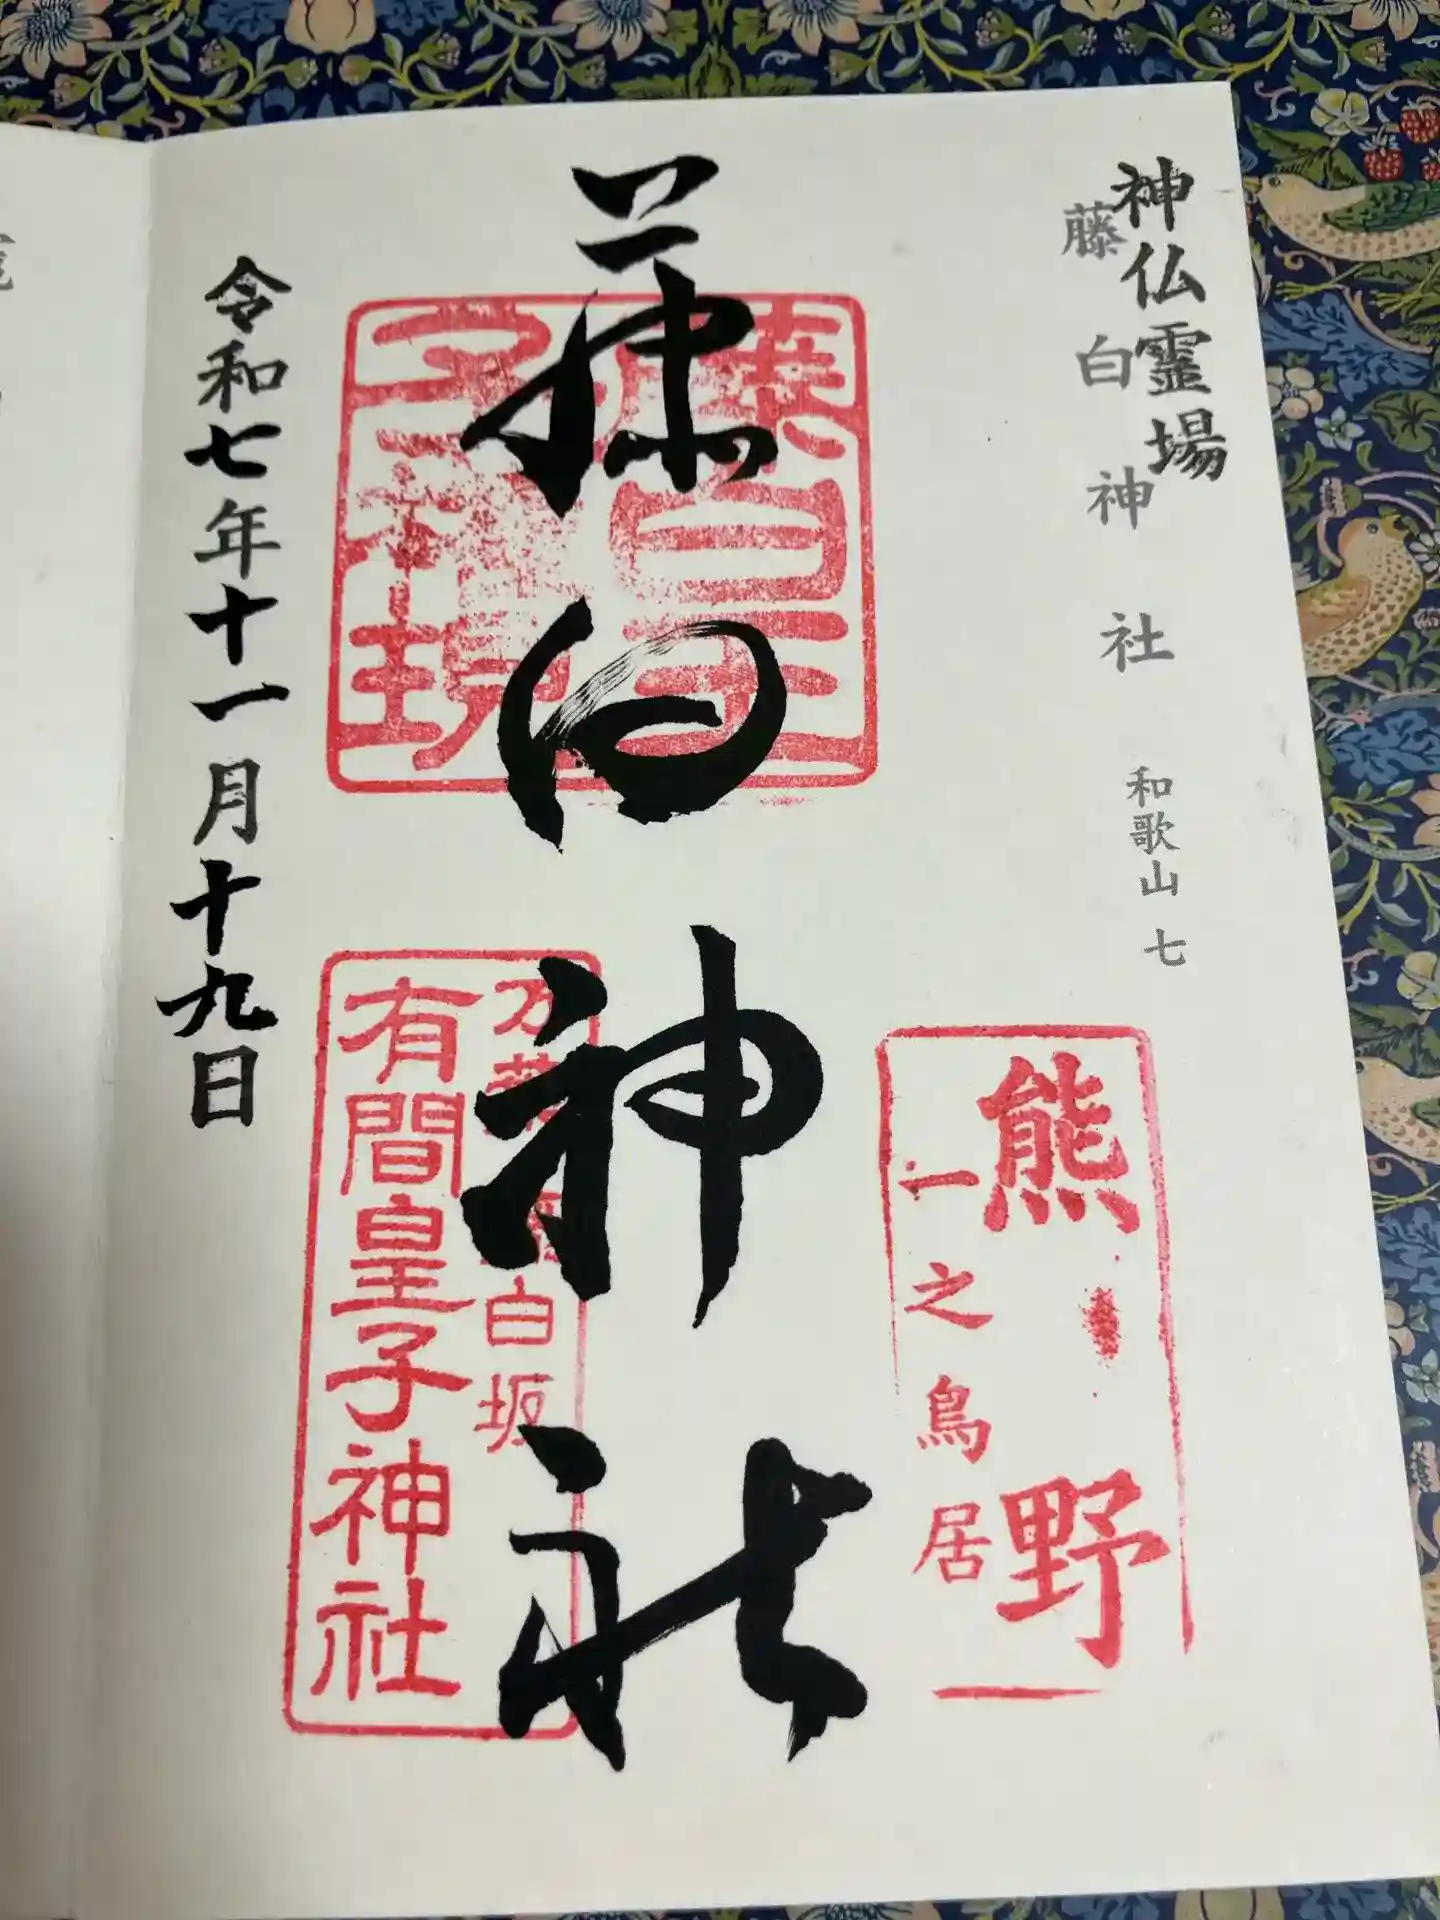 神仏霊場
藤白神社 和歌山 七
熊野
一之鳥居
藤白神社
藤白王
子権現
万葉
白坂
有間皇子神社
令和七年十一月十九日